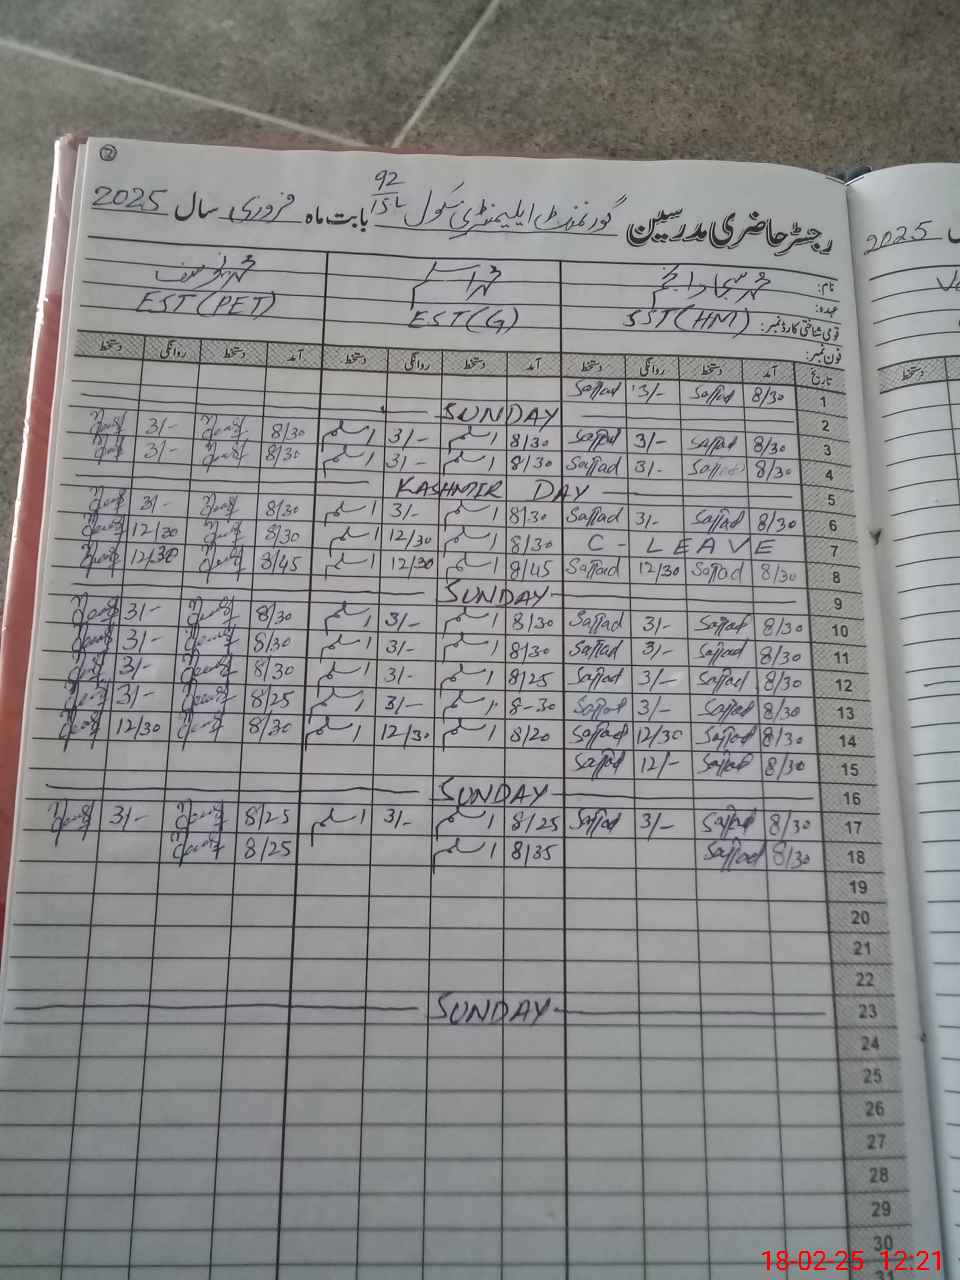 2
رجسٹر حاضری مدرسین گورنمنٹ ایلیمنٹری سکول 92/15L بابت ماہ فروری سال 2025
نام: محمد اسلم محمد یوسف
عہدہ: SST(HM) EST(G) EST(PET)
قومی شناختی کارڈ نمبر:
فون نمبر:
تاریخ آمد دستخط روانگی دستخط آمد دستخط روانگی دستخط آمد دستخط روانگی دستخط
1 8/30 Sajjad 3/- Sajjad
2 SUNDAY
3 8/30 Sajjad 3/- Sajjad 8/30 اسلم 3/- اسلم 8/30 3/-
4 8/30 Sajjad 3/- Sajjad 8/30 اسلم 3/- اسلم 8/30 3/-
5 KASHMIR DAY
6 8/30 Sajjad 3/- Sajjad 8/30 اسلم 3/- اسلم 8/30 3/-
7 C - LEAVE 8/30 اسلم 12/30 اسلم 8/30 12/30
8 8/30 Sajjad 12/30 Sajjad 8/45 اسلم 12/30 اسلم 8/45 12/30
9 SUNDAY
10 8/30 Sajjad 3/- Sajjad 8/30 اسلم 3/- اسلم 8/30 3/-
11 8/30 Sajjad 3/- Sajjad 8/30 اسلم 3/- اسلم 8/30 3/-
12 8/30 Sajjad 3/- Sajjad 8/25 اسلم 3/- اسلم 8/30 3/-
13 8/30 Sajjad 3/- Sajjad 8-30 اسلم 3/- اسلم 8/25 3/-
14 8/30 Sajjad 12/30 Sajjad 8/20 اسلم 12/30 اسلم 8/30 12/30
15 8/30 Sajjad 12/- Sajjad
16 SUNDAY
17 8/30 Sajjad 3/- Sajjad 8/25 اسلم 3/- اسلم 8/25 3/-
18 8/30 Sajjad 8/35 اسلم 8/25
19
20
21
22
23 SUNDAY
24
25
26
27
28
29
30
31
2025
دستخط
18-02-25 12:21